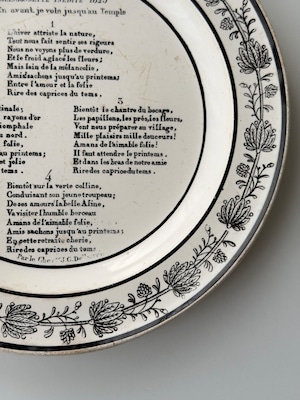 En avant je vole jusqu'au Temple
1
L'hiver attriste la nature,
Tout nous fait sentir ses rigueurs
Nous ne voyons plus de verdure,
Et le froid a glacé les fleurs;
Mais loin de la mélancolie,
Amis sachons jusqu'au printems;
Entre l'amour et la folie
Rire des caprices du tems.
inale;
rayons d'or
iomphale
nord.
folie,
au printems;
et jolie
tems.
3
Bientôt le chantre du bocage,
Les papillons, les prés, les fleurs,
Vont nous préparer au village,
Mille plaisirs mille douceurs!
Amans de l'aimable folie!
Il faut attendre le printems.
Et dans les bras de notre amie
Rire des caprices du tems.
4
Bientôt sur la verte colline,
Conduisant son jeune troupeau;
De ses amours la belle Aline,
Va visiter l'humble berceau
Amans de l'aimable folie,
Amis sachons jusqu'au printems;
En cette retraite chérie,
Rire des caprices du tems
Par le Chev. J.C.